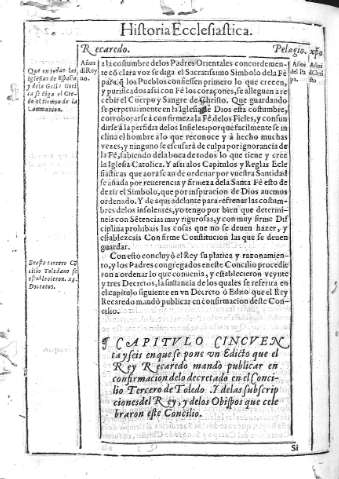 Historia Ecclesiastica.
Recaredo. Pelagio. xpo.
Años del Rey no.
Años del Pa pa.
Años de Cristo
Que en todas las
Iglesias de España
y dela Galia Goti
ca se diga el Cre-
do al tiempo de la
Communion.
a la costumbre delos Padres Orientales concordemen-
te cõ clara voz se diga el Sacratissimo Simbolo dela Fè
para q̃ los Pueblos confiessen primero lo que creen,
y purificados assi con Fè los coraçones, se alleguen a re
cebir el Cuerpo y Sangre de Christo. Que guardando
se perpetuamente en la Iglesia de Dios esta costumbre,
corroborarseà confirmarseà la Fè delos Fieles, y confun
dirseà la perfidia delos Infieles porque facilmente se in
clina el hombre a lo que reconoce y à hecho muchas
vezes, y ninguno se escusarà de culpa por ignorancia de
la Fè, sabiendo dela boca de todos lo que tiene y cree
la Iglesia Catolica. Y assi a los Capitulos y Reglas Ecle
siasticas que aora se an de ordenar por vuestra Santidad
se añada por reuerencia y firmeza dela Santa Fè esto de
dezir el Simbolo, que por inspiracion de Dios auemos
ordenado. Y de aqui adelante para refrenar las costum-
bres delos insolentes, yo tengo por bien que determi-
neis con Sẽtencias muy rigurosas, y con muy firme Dif
ciplina prohibais las cosas que no se deuen hazer, y
establezcais con firme Constitucion las que se deuen
guardar.
Eneste tercero Cõ
cilio Toledano se
establecieron. 23.
Decretos.
Con esto concluyò el Rey su platica y razonamiento,
y los Padres congregados en este Concilio procedie
ron a ordenar lo que conuenia, y establecieron veynte
y tres Decretos, la sustancia de los quales se referira en
el capitulo siguiente en vn Decreto ò Edito que el Rey
Recaredo mandò publicar en confirmacion deste Con-
cilio.
¶ CAPITVLO CINCVEN
ta y seis en que se pone vn Edicto que el
Rey Recaredo mando publicar en
confirmacion delo decretado en el Conci-
lio Tercero de Toledo. Y delas subscrip
ciones del Rey, y delos Obispos que cele
braron este Concilio.
Si